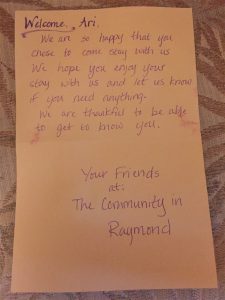 Welcome, Ari.
We are so happy that you
chose to come stay with us
We hope you enjoy your
stay with us and let us know
if you need anything.
We are thankful to be able
to get to know you.
Your Friends
at:
The Community in
Raymond